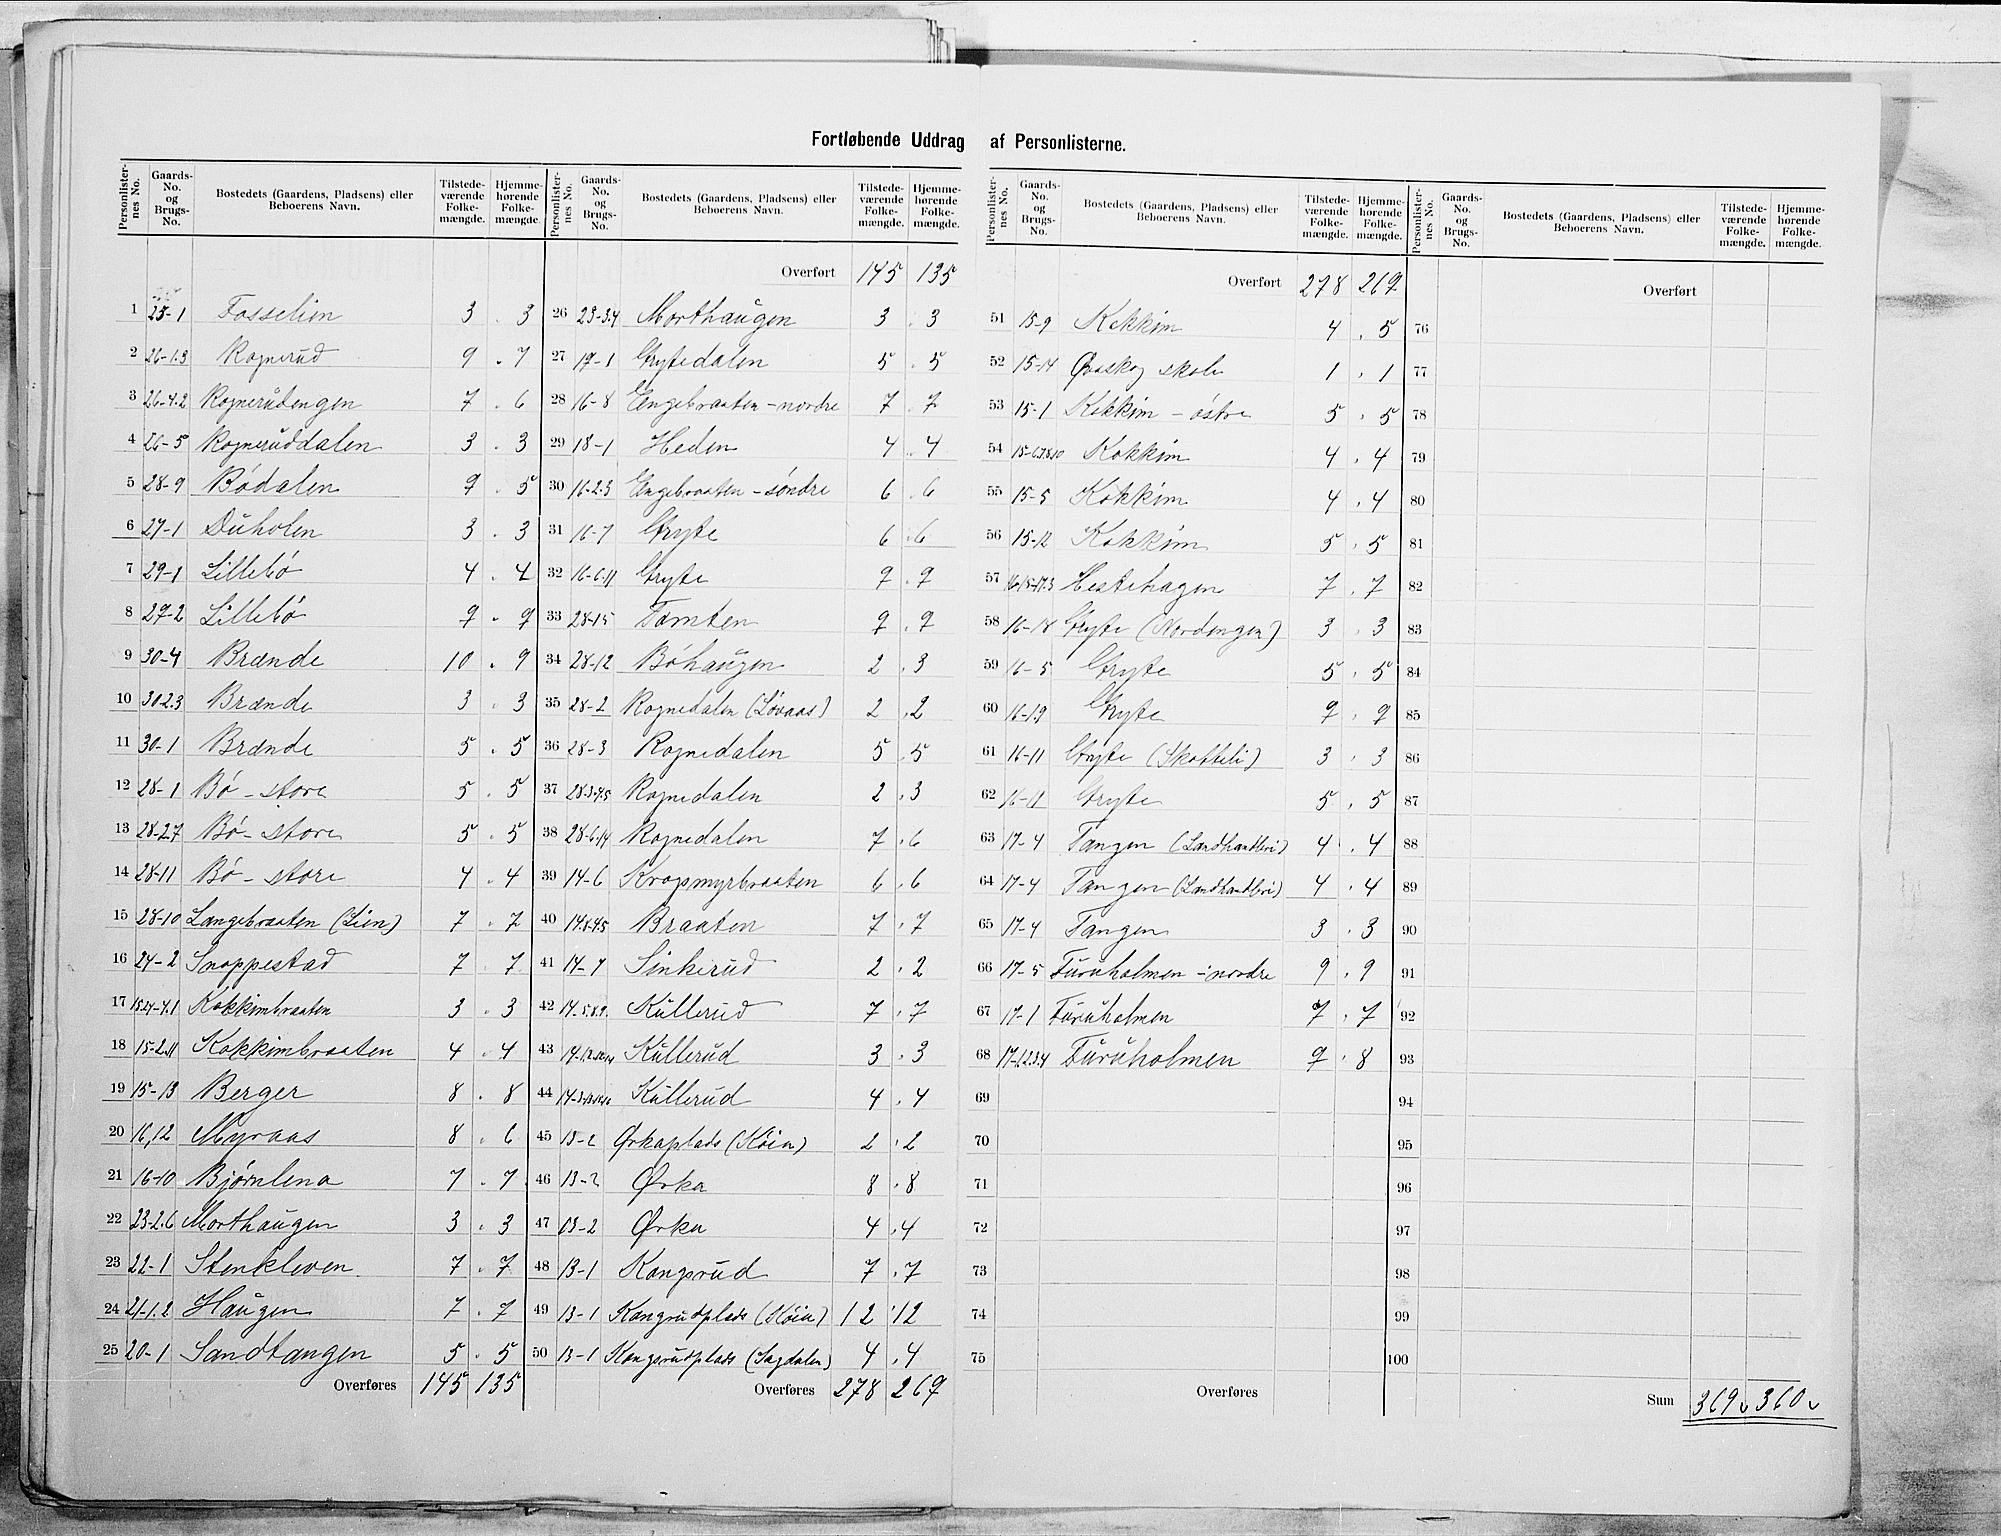 Fortløbende Uddrag af Personlisterne.
Personlister-nes No. Gaards-No. og Brugs-No. Bostedets (Gaardens, Pladsens) eller Beboerens Navn. Tilstede-værende Folke-mængde. Hjemme-hørende Folke-mængde.
1 25-1 Fosselien 3 3
2 26-1.3 Rognerud 9 7
3 26-4.2 Rognerudengen 7 6
4 26-5 Rogneruddalen 3 3
5 28-9 Bødalen 9 5
6 27-1 Duholen 3 3
7 29-1 Lillebø 4 4
8 29-2 Lillebø 9 9
9 30-4 Brænde 10 9
10 30-2.3 Brænde 3 3
11 30-1 Brænde 5 5
12 28-1 Bø - store 5 5
13 28-2.7 Bø - store 5 5
14 28-11 Bø - store 4 4
15 28-10 Langebraaten (Lien) 7 7
16 24-2 Snoppestad 7 7
17 Kokkimbraaten 3 3
18 15-2.11 Kokkimbraaten 4 4
19 15-13 Berger 8 8
20 16,12 Myraas 8 6
21 16-10 Bjørnlena 7 7
22 23-2.6 Morthaugen 3 3
23 22-1 Stenkleven 7 7
24 21-1.2 Haugen 7 7
25 20-1 Sandtangen 5 5
Overføres 145 135
Personlister-nes No. Gaards-No. og Brugs-No. Bostedets (Gaardens, Pladsens) eller Beboerens Navn. Tilstede-værende Folke-mængde. Hjemme-hørende Folke-mængde.
Overført 145 135
26 23-3.4 Morthaugen 3 3
27 19-1 Grytedalen 5 5
28 16-8 Engebraaten - nordre 7 7
29 18-1 Heden 4 4
30 16-2.3 Engebraaten - søndre 6 6
31 16-7 Gryte 6 6
32 16-6.11 Gryte 9 9
33 28-15 Tomten 9 9
34 28-12 Bøhaugen 2 3
35 28-2 Rognedalen (Løvaas) 2 2
36 28-3 Rognedalen 5 5
37 28.3-4.5 Rognedalen 2 3
38 28-6.14 Rognedalen 7 6
39 14-6 Kropsmyrbraaten 6 6
40 Braaten 7 7
41 14-7 Sinkerud 2 2
42 14-5.8.9. Kullerud 7 7
43 Kullerud 3 3
44 Kullerud 4 4
45 13-2 Ørkaplads (Køia) 2 2
46 13-2 Ørka 8 8
47 13-2 Ørka 4 4
48 13-1 Kongsrud 7 7
49 13-1 Kongsrudplads (Køia) 12 12
50 13-1 Kongsrudplads (Sagdalen) 4 4
Overføres 278 269
Personlister-nes No. Gaards-No. og Brugs-No. Bostedets (Gaardens, Pladsens) eller Beboerens Navn. Tilstede-værende Folke-mængde. Hjemme-hørende Folke-mængde.
Overført 278 269
51 15-9 Kokkim 4 5
52 15-14 Øvaskog skole 1 1
53 15-1 Kokkim - østre 5 5
54 Kokkim 4 4
55 15-5 Kokkim 4 4
56 15-12 Kokkim 5 5
57 Hestehagen 7 7
58 16-18 Gryte (Nordengen) 3 3
59 16-5 Gryte 5 5
60 16-1.9 Gryte 9 9
61 16-11 Gryte (Skotteli) 3 3
62 16-11 Gryte 5 5
63 17-4 Tangen (Landhandleri) 4 4
64 17-4 Tangen (Landhandleri) 4 4
65 17-4 Tangen 3 3
66 17-5 Furuholmen - nordre 9 9
67 17-1 Furuholmen 7 7
68 17-1.2.3.4 Furuholmen 9 8
69
70
71
72
73
74
75
Overføres
Personlister-nes No. Gaards-No. og Brugs-No. Bostedets (Gaardens, Pladsens) eller Beboerens Navn. Tilstede-værende Folke-mængde. Hjemme-hørende Folke-mængde.
Overført
76
77
78
79
80
81
82
83
84
85
86
87
88
89
90
91
92
93
94
95
96
97
98
99
100
Sum 369 360